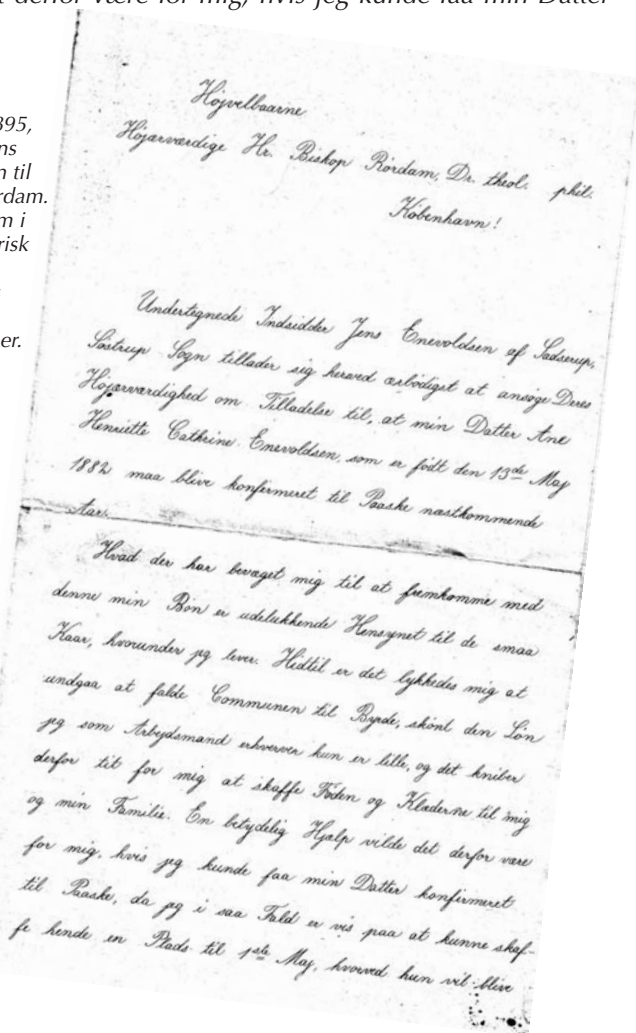 derfor være for mig, hvis jeg kunde faa min Datter
395,
ns
n til
rdam.
m i
risk
er.
Højvelbaarne
Højærværdige Hr. Biskop Rørdam, Dr. theol. phil.
København!
Undertegnede Indsidder Jens Enevoldsen af Sadserup,
Søstrup Sogn tillader sig herved ærbødigst at ansøge Deres
Højærværdighed om Tilladelse til, at min Datter Ane
Henriette Cathrine Enevoldsen, som er født den 13de Maj
1882 maa blive konfirmeret til Paaske næstkommende
Aar.
Hvad der har bevæget mig til at fremkomme med
denne min Bøn er udelukkende Hensynet til de smaa
Kaar, hvorunder jeg lever. Hidtil er det lykkedes mig at
undgaa at falde Communen til Byrde, skønt den Løn
jeg som Arbejdsmand erhverver kun er lille, og det kniber
derfor tit for mig at skaffe Føden og Klæderne til mig
og min Familie. En betydelig Hjælp vilde det derfor være
for mig, hvis jeg kunde faa min Datter konfirmeret
til Paaske, da jeg i saa Fald er vis paa at kunne skaf-
fe hende en Plads til 1ste Maj, hvorved hun vil blive